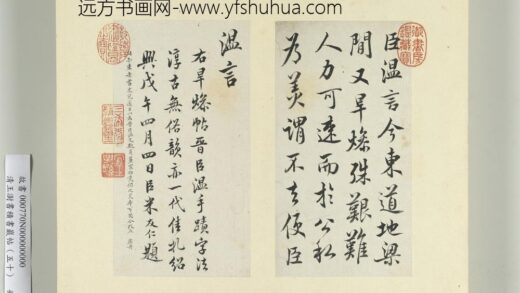 远方书画网-www.yfshuhua.com
臣温言今東道地梁
間又旱燥殊艱難
人力可速而於公私
為美謂不去便臣
温言
右旱燥帖晉臣温手蹟字法
淳古無俗韻亦一代佳札紹
興戊午四月四日臣米友仁題
故書 000770N000000000
清王澍書積書巖帖(五十)